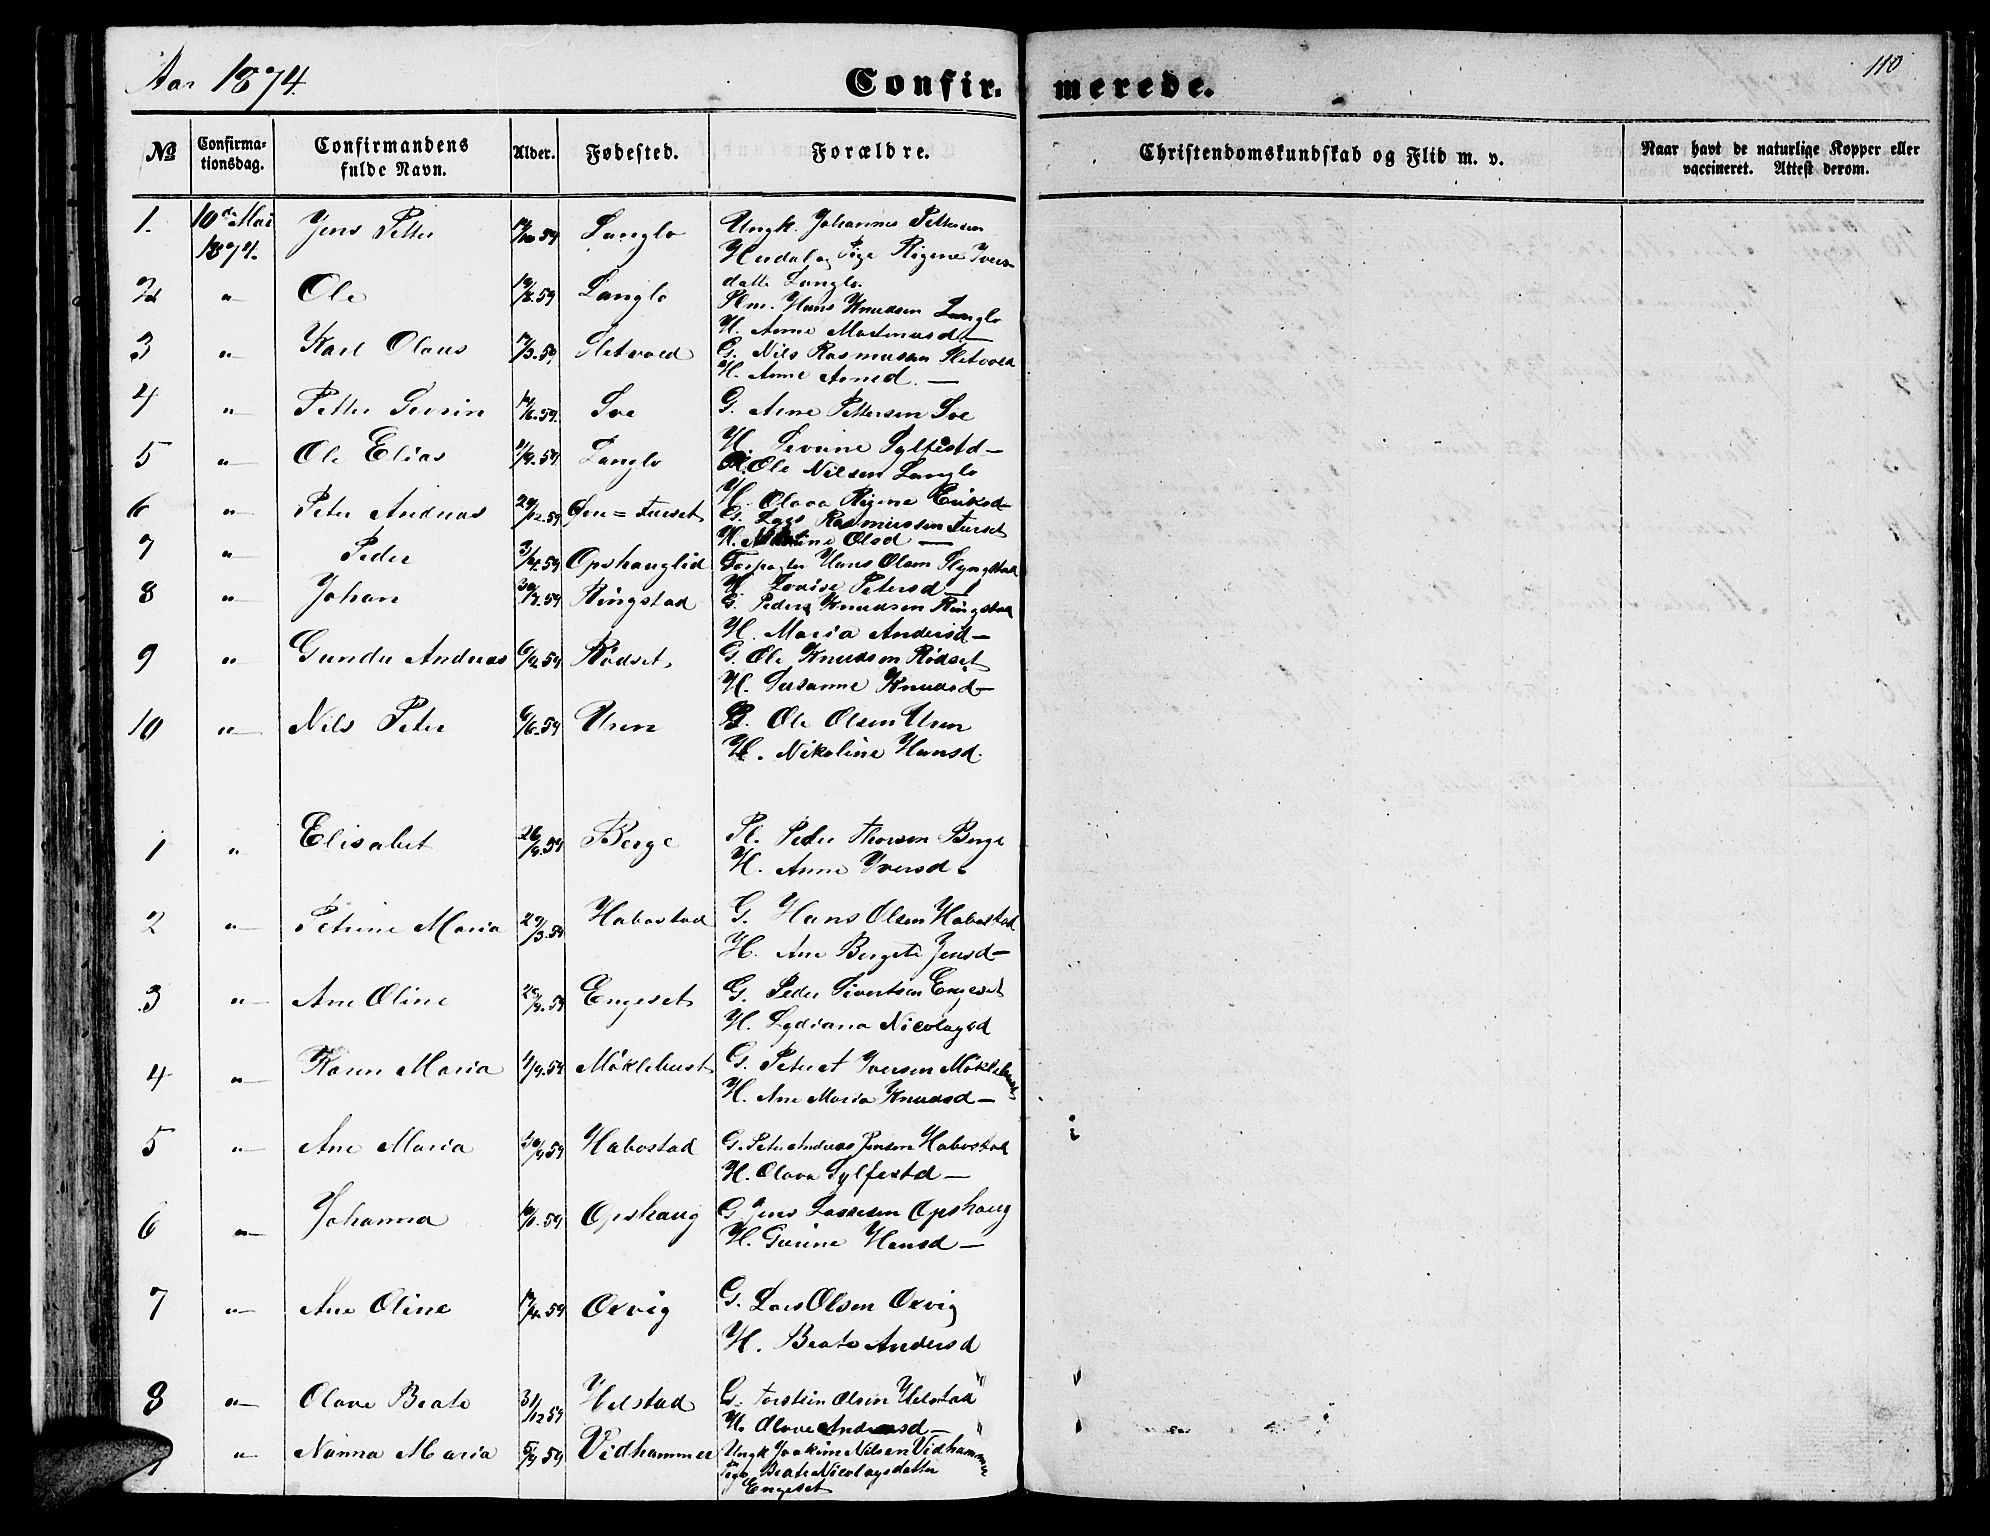 Aar 1874. Confir- merede. 110
№ Confirma- tionsdag. Confirmandens fulde Navn. Alder. Fødested. Forældre. Christendomskundskab og Flid m. v. Naar havt de naturlige Kopper eller vaccineret. Attest derom.
1. 10de Mai 1874. Jens Petter 59 Langlo Ungk. Johannes Pettersen
Pige Regine Ivers-
datte Langlo
2 " Ole 59 Langlo Hans Knudsen Langlo
H. Anne Martinusd —
3 " Karl Olaus 59 Sletvold G. Nils Rasmussen Sletvold
H. Anne Arned. —
4 " Petter 59. Soe G. Arne Pettersen Soe
H. Sevrine Sylfestd —
5 " Ole Elias 59 Langlo Ole Nilsen Langlo
H. Olava Regine Eriksd —
6 " Peter Andreas 29/12.59 Furset G. Lars Rasmussen Furset
H. Olsd —
7 " Peder 59 Opshauglid Hans Olsen Slyngstad
H. Lovise Petersd —
8 " Johan 59 Ringstad G. Peder Knudsen Ringstad
H. Maria Andersd —
9 " Gunder Andreas 59 Rødset G. Ole Knudsen Rødset
H. Susanne Knudsd —
10 " Nils Peter 6/6.59 Uren Ole Olsen Uren
H. Nikoline Hansd.
1 " Elisabet 59 Berge Pl. Peder Thorsen Berge
H. Anne Iversd
2 " Petrine Maria 29/3.59 Habostad G. Hans Olsen Habostad
H. Ane Bergete Jensd —
3 " Ane Oline 59 Engeset G. Peder Sivertsen Engeset
H. Lydiana Nicolaysd
4 " Karen Maria 59 Møklebust G. Iversen Møklebust
H. Ane Maria Knudsd —
5 " Ane Maria 59 Habostad G. Peter Andreas Jensen Habostad
H. Olava Sylfestd —
6 " Johanna 59 Opshaug G Jens Lassesen Opshaug
H. Gurine Hansd —
7 " Ane Oline 59 Oxvig G. Lars Olsen Oxvig
H. Beate Andersd
8 " Olave Beate 31/12 59 Helstad G. Torstein Olsen Helstad
H. Olave Andersd —
" Nanna Maria 5/9 59 Vidhammer Ungk Joakim Nilsen Vidhammer
Pige Beate Nicolaysdatter
Engeset